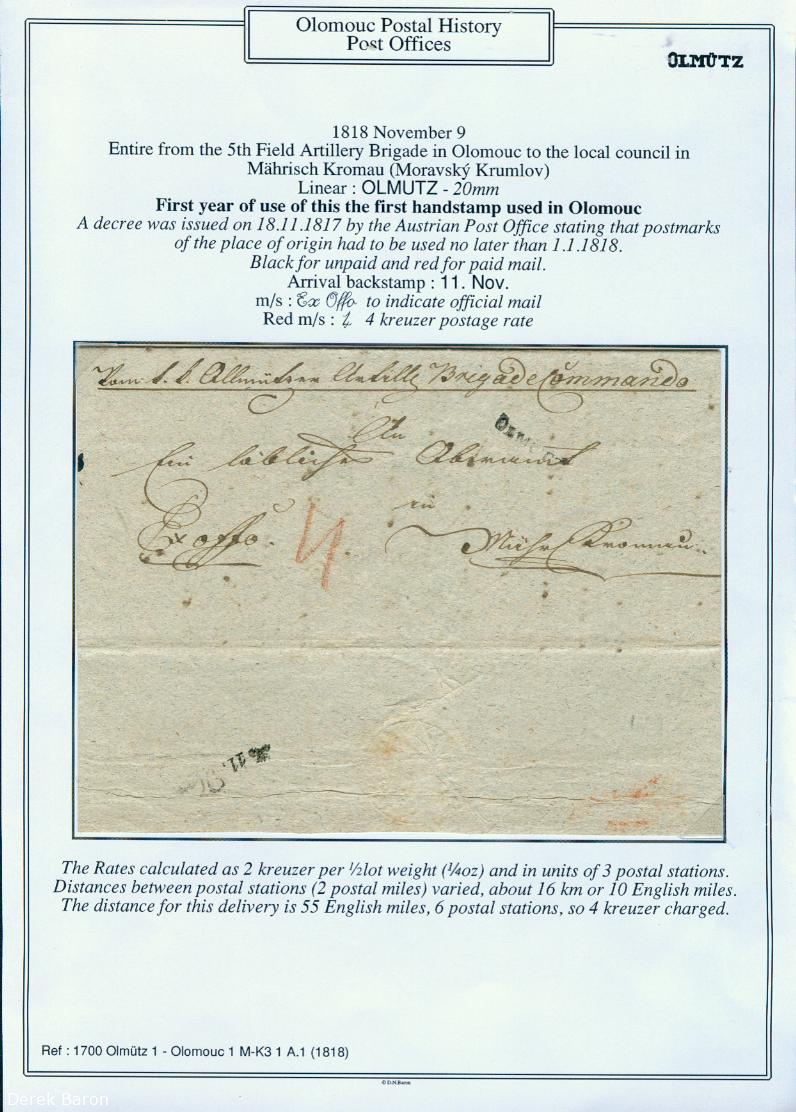 Olomouc Postal History
Post Offices
OLMÜTZ
1818 November 9
Entire from the 5th Field Artillery Brigade in Olomouc to the local council in
Mährisch Kromau (Moravský Krumlov)
Linear : OLMUTZ - 20mm
First year of use of this the first handstamp used in Olomouc
A decree was issued on 18.11.1817 by the Austrian Post Office stating that postmarks
of the place of origin had to be used no later than 1.1.1818.
Black for unpaid and red for paid mail.
Arrival backstamp : 11. Nov.
m/s : Ex Offo to indicate official mail
Red m/s : 4 4 kreuzer postage rate
Vom k. k. Ollmützer Artille Brigade Commando
An
Ein löbliches Oberamt
in
Ex offo.
4
Mähr Kromau
11.
The Rates calculated as 2 kreuzer per ½lot weight (¼oz) and in units of 3 postal stations.
Distances between postal stations (2 postal miles) varied, about 16 km or 10 English miles.
The distance for this delivery is 55 English miles, 6 postal stations, so 4 kreuzer charged.
Ref : 1700 Olmütz 1 - Olomouc 1 M-K3 1 A.1 (1818)
© D.N.Baron
Derek Baron